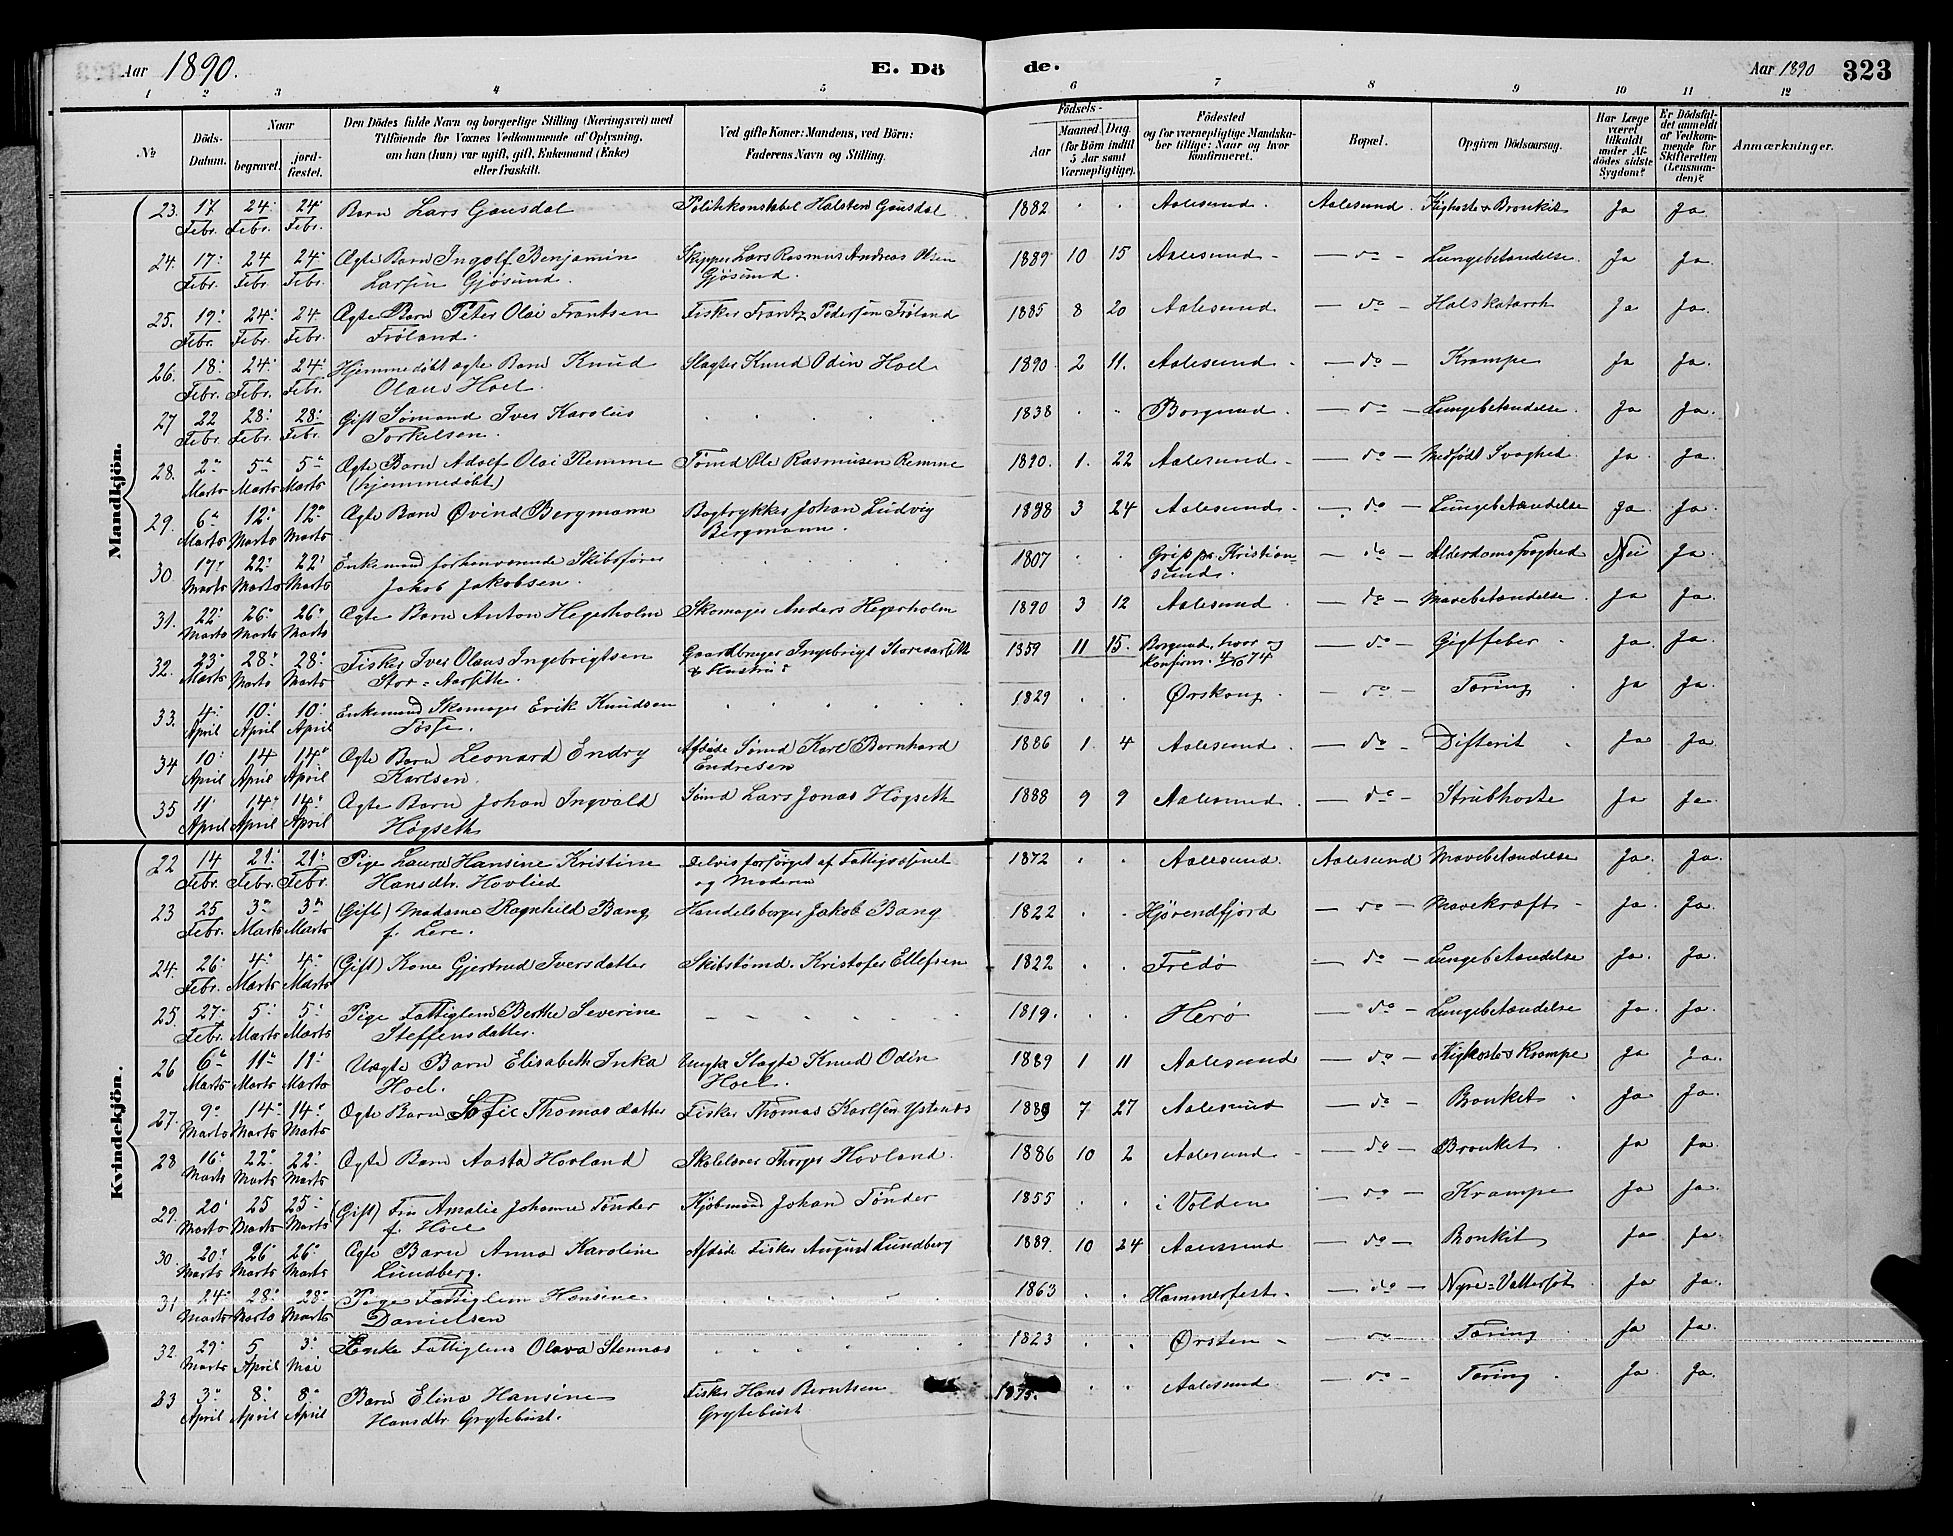 Aar 1890. E. Dö de. Aar 1890 323
1 2 3 4 5 6 7 8 9 10 11 12
№ Döds-Datum. Naar begravet. jord-fæstet. Den Dödes fulde Navn og borgerlige Stilling (Næringsvei) med Tilföiende for Voxnes Vedkommende af Oplysning, om han (hun) var ugift, gift, Enkemand (Enke) eller fraskilt. Ved gifte Koner: Mandens, ved Börn: Faderens Navn og Stilling. Födsels- Aar Maaned. Dag. (for Börn indtil 5 Aar samt Værnepligtige). Födested og for værnepligtige Mandska-ber tillige: Naar og hvor konfirmeret. Bopæl. Opgiven Dödsaarsag. Har Læge været tilkaldt under Af-dödes sidste Sygdom? Er Dödsfal-det anmeldt af Vedkom-mende for Skifteretten (Lensman-den)? Anmærkninger.
Mandkjön.
23. 17 Febr. 24 Febr. 24 Febr. Barn Lars Gausdal Politikonstabel Halsten Gausdal 1882 Aalesund. Aalesund. Kighoste & Bronkit Ja Ja.
24. 17 Febr. 24 Febr. 24 Febr. Ægte Barn Ingolf Benjamin Larsen Gjøsund. Skipper Lars Rasmus Andreas Olsen Gjøsund. 1889 10 15 Aalesund - do - Lungebetændelse. Ja Ja.
25. 19 Febr. 24 Febr. 24 Febr. Ægte Barn Peter Olai Frantsen Frøland. Fisker Frantz Pedersen Frøland 1885 8 20 Aalesund - do - Halskatarrh Ja Ja.
26. 18 Febr. 24 Febr. 24 Febr. Hjemmedøbt ægte Barn Knud Olaus Hoel. Slagter Knud Odin Hoel 1890. 2 11. Aalesund - do - Krampe Ja Ja.
27 22 Febr. 28 Febr. 28 Febr. Gift Sømand Iver Karolus Torkelsen. 1838 Borgund. - do - Lungebetændelse. Ja Ja.
28. 2 Marts 5 Marts 5 Marts Ægte Barn Adolf Olai Remme (hjemmedøbt) Tømd Ole Rasmusen Remme 1890. 1. 22 Aalesund - do - Medfødt Svaghed Ja. Ja.
29. 6 Marts 12 Marts 12 Marts Ægte Barn Øvind Bergmann Bogtrykker Johan Ludvig Bergmann. 1888 3 24 Aalesund - do - Lungebetændelse Ja Ja.
30. 17 Marts 22 Marts 22 Marts Enkemand forhenværende Skibsfører Jakob Jakobsen. 1807 Grip pr. Kristian-sund. - do - Alderdomssvaghed Nei Ja.
31. 22 Marts 26 Marts 26 Marts Ægte Barn Anton Hegerholm Skomager Anders Hegerholm 1890 3 12 Aalesund. - do - Mavebetændelse. Ja Ja.
32. 23 Marts 28 Marts 28 Marts Fisker Iver Olaus Ingebrigtsen Stor-Aarsæth. Gaardbruger Ingebrigt 1859 11 15. Borgund, hvor og konfirm. 4/10 74 - do - Gigtfeber Ja. Ja.
33. 4 April 10 April 10 April Enkemand Skomager Erik Knudsen Tøsse. 1829 Ørskoug. - do - Tæring Ja Ja.
34 10 April 14 April 14 April Ægte Barn Leonard Endry Karlsen. Afdøde Sømd Karl Bernhard Endresen 1886 1. 4 Aalesund. - do - Difterit Ja Ja.
35 11 April 14 April 14 April Ægte Barn Johan Ingvald Høgseth Sømd Lars Jonas Høgseth 1888 9 9 Aalesund. - do - Strubhoste Ja Ja.
Kvindekjön.
22 14 Febr. 21 Febr. 21 Febr. Pige Laura Hansine Kristine Hansdtr. Hovlied Delvis forsørget af Fattigvæsnet og Moderen 1872 Aalesund. Aalesund Mavebetændelse Ja. Ja.
23 25 Febr. 3 Marts 3 Marts (Gift) Madame Ragnhild Bang f. Lere. Handelsborger Jakob Bang 1822 Hjørendfjord - do - Mavekræft - Ja. Ja.
24. 26 Febr. 4 Marts 4 Marts (Gift) Kone Gjertrud Iversdatter Skibstømd. Kristofer Ellefsen 1822 Fredø - do - Lungebetændelse Ja. Ja.
25. 27 Febr. 5 Marts 5 Marts Pige Fattiglem Berthe Severine Steffensdatter. 1819. Herø - do - Lungebetændelse Ja. Ja.
26 6 Marts 11 Marts 11 Marts Uægte Barn Elisabeth Inka Hoel. Ungk. Slagter Knud Odin Hoel. 1889 1 11 Aalesund - do - Kighoste & Krampe Ja Ja.
27. 9 Marts 14 Marts 14 Marts Ægte Barn Sofie Thomasdatter Fisker Thomas Karlsen Ystenes 1889 7 27 Aalesund - do - Bronket. Ja Ja.
28 16 Marts 22 Marts 22 Marts Ægte Barn Aasta Hovland Skolelærer Thorger Hovland. 1886 10 2 Aalesund - do - Bronket. Ja Ja.
29. 20 Marts 25 Marts 25 Marts (Gift) Fru Amalie Johanne Tønder f. Hoel Kjøbmand Johan Tønder 1855 i Volden - do - Krampe Ja Ja.
30. 20 Marts 26 Marts 26 Marts Ægte Barn Anna Karoline Lundberg. Afdøde Fisker August Lundberg 1889. 10 24 Aalesund - do - Bronkit Ja Ja.
31 24 Marts 28 Marts 28 Marts Pige Fattiglem Hansine Danielsen 1863 Hammerfest. - do - Nyre-Vattersot Ja Ja.
32. 29 Marts 5 April 3 Mai Enke Fattiglem Olava Stennes 1823 Ørsten - do - Tæring Ja Ja.
33 3 April 8 April 8 April Barn Elina Hansine Hansdtr. Grytebust. Fisker Hans Berntsen Grytebust 1875. Aalesund. - do - Tæring. Ja Ja.